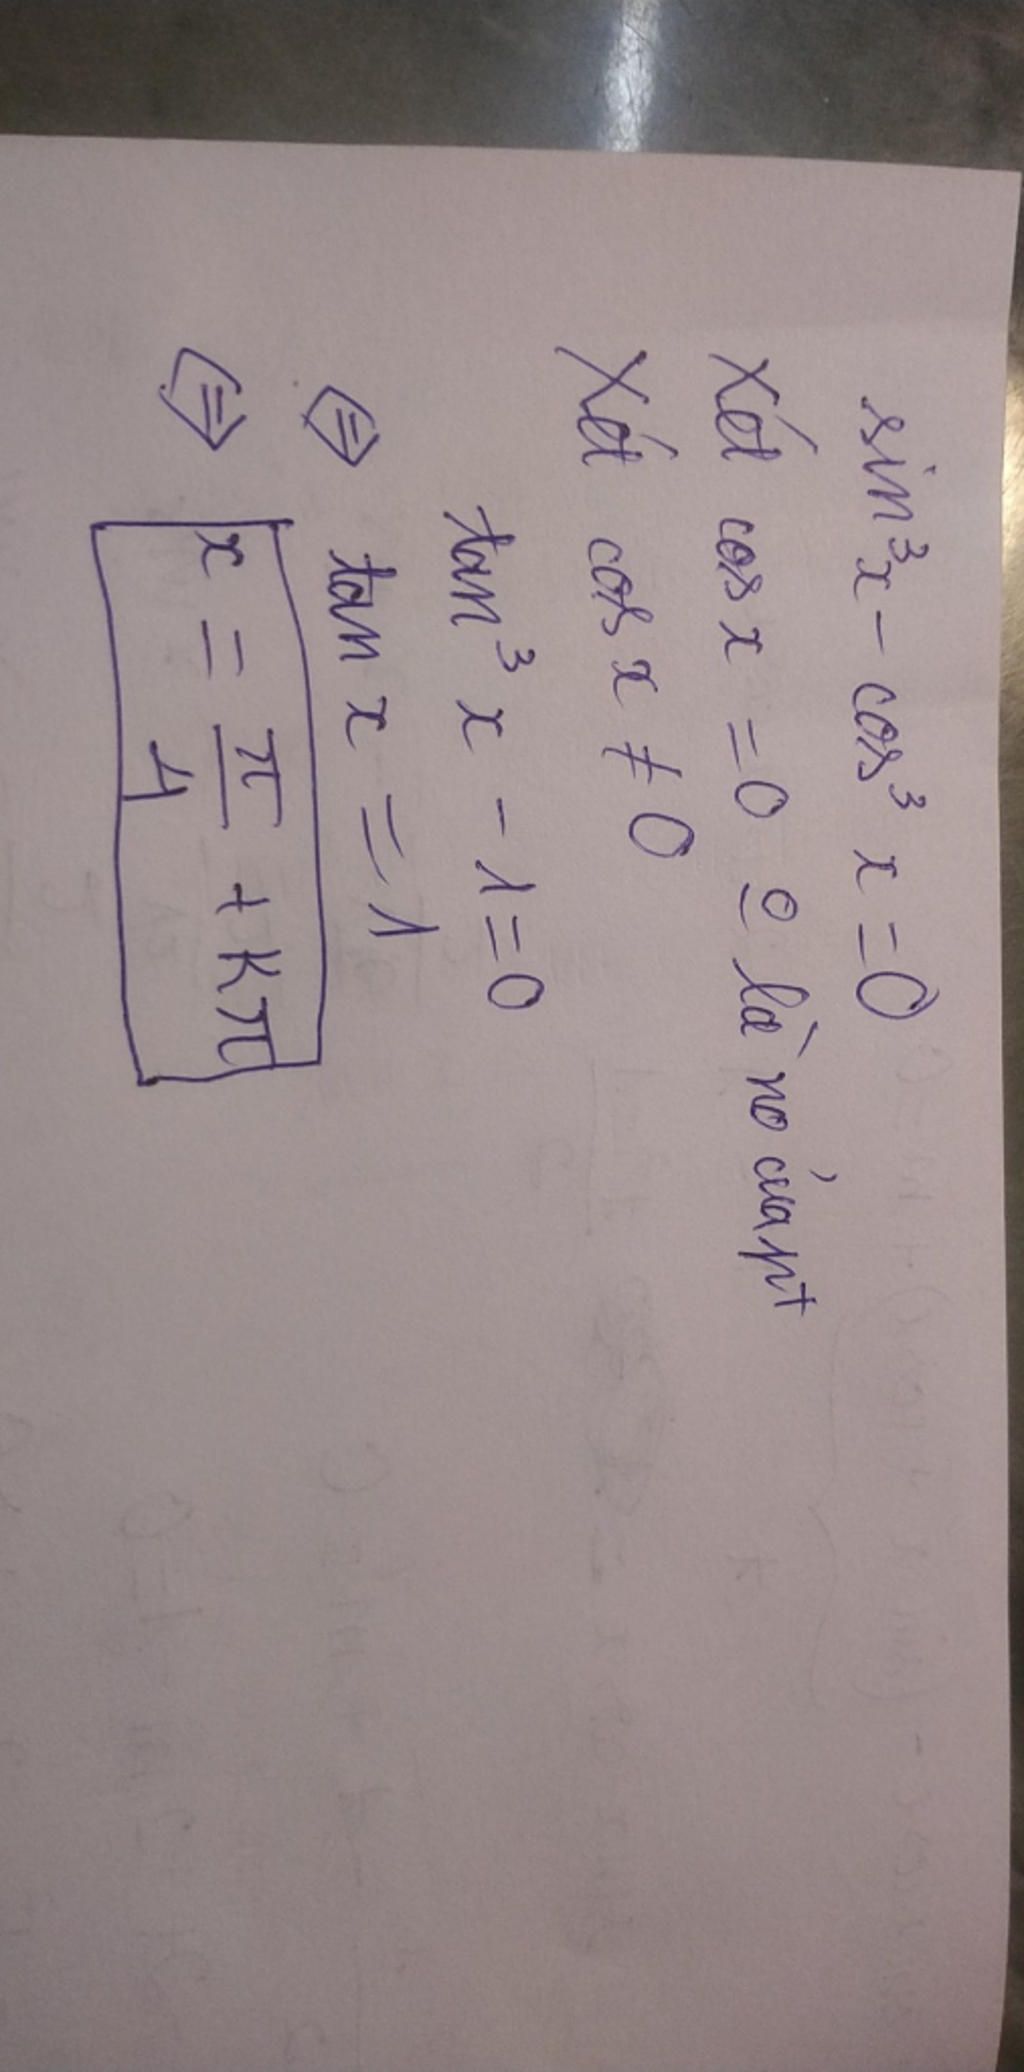 sin³x - cos³x = 0
Xét cos x = 0 là no của pt
Xét cos x ≠ 0
tan³ x - 1 = 0
⇔ tan x = 1
⇔ x = π/4 + kπ